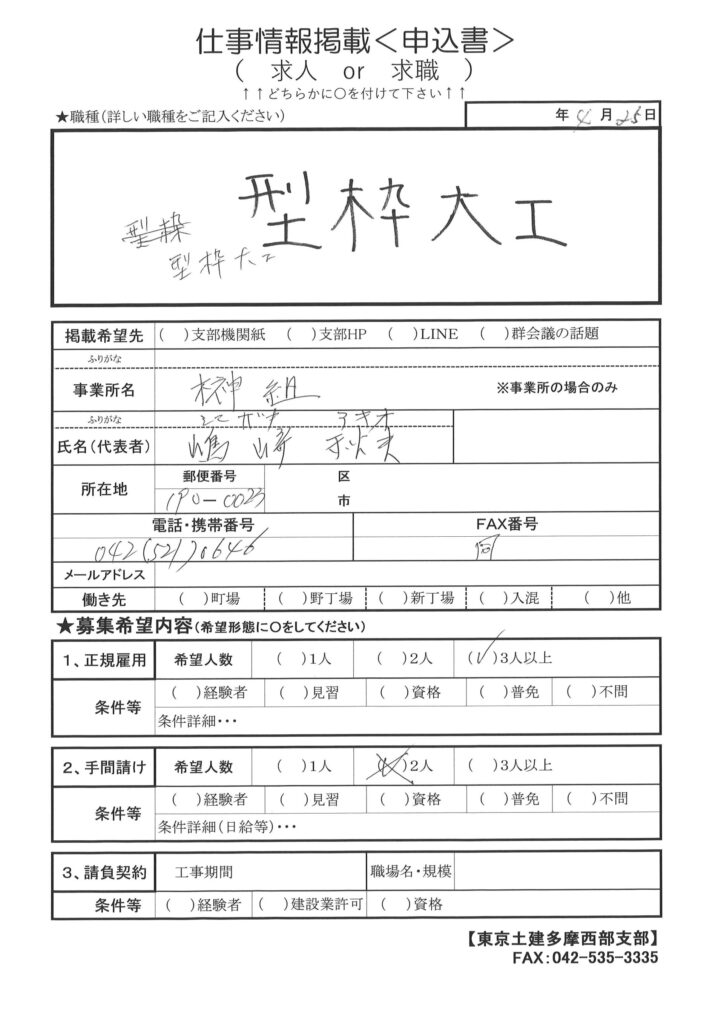 仕事情報掲載＜申込書＞
（　求人　or　求職　）
↑↑どちらかに〇を付けて下さい↑↑
★職種（詳しい職種をご記入ください）
年 4 月 25 日
型枠大工
型枠大工
掲載希望先 （　）支部機関紙 （　）支部HP （　）LINE （　）群会議の話題
ふりがな
事業所名 神組 ※事業所の場合のみ
ふりがな アキオ
氏名（代表者） 嶋﨑 秋夫
所在地 郵便番号 区
190-0023 市
電話・携帯番号 FAX番号
042(521)0646 同
メールアドレス
働き先 （　）町場 （　）野丁場 （　）新丁場 （　）入混 （　）他
★募集希望内容（希望形態に〇をしてください）
1、正規雇用 希望人数 （　）1人 （　）2人 （✓）3人以上
条件等 （　）経験者 （　）見習 （　）資格 （　）普免 （　）不問
条件詳細・・・
2、手間請け 希望人数 （　）1人 （　）2人 （　）3人以上
条件等 （　）経験者 （　）見習 （　）資格 （　）普免 （　）不問
条件詳細（日給等）・・・
3、請負契約 工事期間 職場名・規模
条件等 （　）経験者 （　）建設業許可 （　）資格
【東京土建多摩西部支部】
FAX：042-535-3335